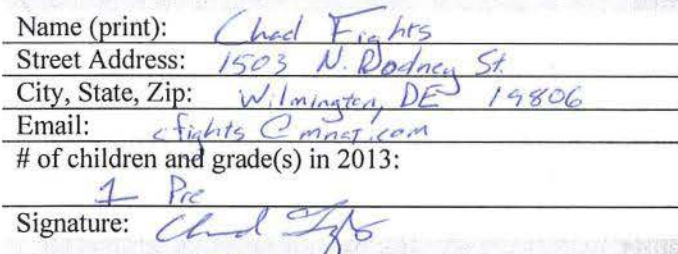 Name (print): Chad Fights
Street Address: 1503 N. Rodney St.
City, State, Zip: Wilmington, DE 19806
Email: cfights@mnat.com
# of children and grade(s) in 2013:
1 Pre
Signature: Chad Fights